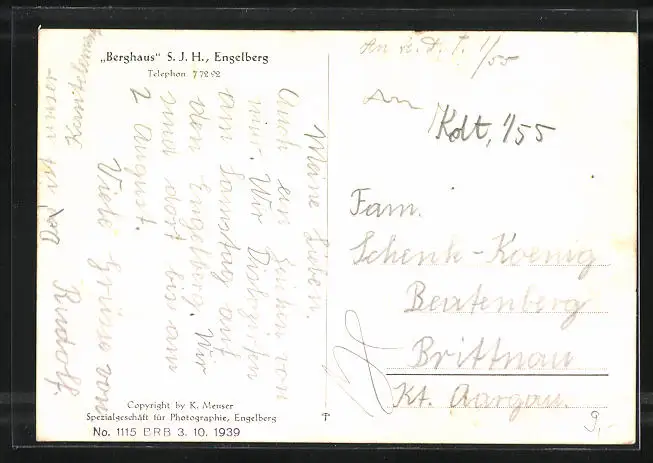 „Berghaus" S. J. H., Engelberg
Telephon 7 72 92
Meine Lieben.
Auch ein Zeichen von
mir. Wir
am Samstag auf
den Engelberg. Wir
sind dort bis am
2 August.
Viele Grüsse von
Rudolf.
Copyright by K. Meuser
Spezialgeschäft für Photographie, Engelberg
No. 1115 BRB 3. 10. 1939
1/55
An
Kdt, 1/55
Fam.
Schenk-Koenig
Beatenberg
Brittnau
Kt. Aargau.
9,-